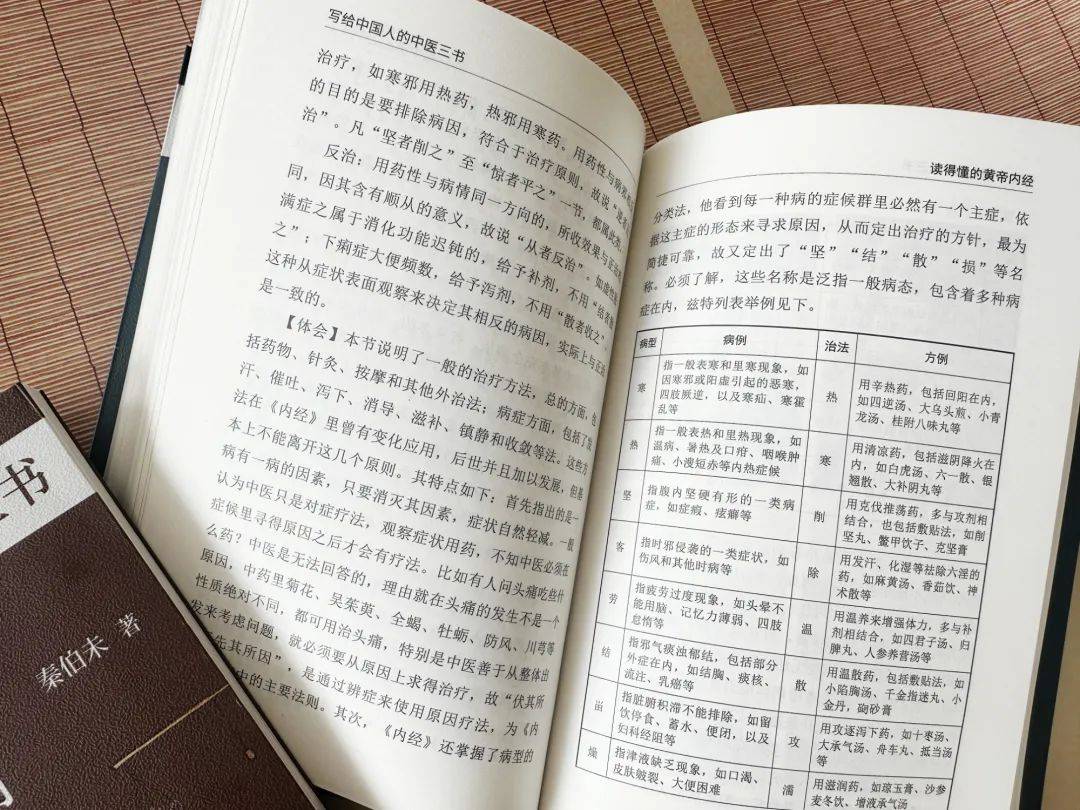 写给中国人的中医三书
治疗，如寒邪用热药，热邪用寒药。用药性与病
的目的是要排除病因，符合于治疗原则，故说“
治”。凡“坚者削之”至“惊者平之”一节，都属此类。
反治：用药性与病情同一方向的，所收效果与正治
同，因其含有顺从的意义，故说“从者反治”。如虚性
满症之属于消化功能迟钝的，给予补剂，不用“结者散
之”；下痢症大便频数，给予泻剂，不用“散者收之”。
这种从症状表面观察来决定其相反的病因，实际上与正治
是一致的。
【体会】本节说明了一般的治疗方法，总的方面，包
括药物、针灸、按摩和其他外治法；病症方面，包括了发
汗、催吐、泻下、消导、滋补、镇静和收敛等法。这些方
法在《内经》里曾有变化应用，后世并且加以发展，但基
本上不能离开这几个原则。其特点如下：首先指出的是一
病有一病的因素，只要消灭其因素，症状自然轻减。一般
认为中医只是对症疗法，观察症状用药，不知中医必须在
症候里寻得原因之后才会有疗法。比如有人问头痛吃些什
么药？中医是无法回答的，理由就在头痛的发生不是一个
原因，中药里菊花、吴茱萸、全蝎、牡蛎、防风、川芎等
性质绝对不同，都可用治头痛，特别是中医善于从整体出
发来考虑问题，就必须要从原因上求得治疗，故“伏其所
先其所因”，是通过辨症来使用原因疗法，为《内
中的主要法则。其次，《内经》还掌握了病型的
读得懂的黄帝内经
分类法，他看到每一种病的症候群里必然有一个主症，依
据这主症的形态来寻求原因，从而定出治疗的方针，最为
简捷可靠，故又定出了“坚”“结”“散”“损”等名
称。必须了解，这些名称是泛指一般病态，包含着多种病
症在内，兹特列表举例见下。
病型 病例 治法 方例
寒 指一般表寒和里寒现象，如因寒邪或阳虚引起的恶寒，四肢厥逆，以及寒疝、寒霍乱等 热 用辛热药，包括回阳在内，如四逆汤、大乌头煎、小青龙汤、桂附八味丸等
热 指一般表热和里热现象，如温病、暑热及口疳、咽喉肿痛、小溲短赤等内热症候 寒 用清凉药，包括滋阴降火在内，如白虎汤、六一散、银翘散、大补阴丸等
坚 指腹内坚硬有形的一类病症，如症瘕、痃癖等 削 用克伐推荡药，多与攻剂相结合，也包括敷贴法，如削坚丸、鳖甲饮子、克坚膏
客 指时邪侵袭的一类症状，如伤风和其他时病等 除 用发汗、化湿等祛除六淫的药，如麻黄汤、香茹饮、神术散等
劳 指疲劳过度现象，如头晕不能用脑、记忆力薄弱、四肢怠惰等 温 用温养来增强体力，多与补剂相结合，如四君子汤、归脾丸、人参养营汤等
结 指邪气痰浊郁结，包括部分外症在内，如结胸、痰核、流注、乳癌等 散 用温散药，包括敷贴法，如小陷胸汤、千金指迷丸、小金丹、硇砂膏
畄 指脏腑积滞不能排除，如留饮停食、蓄水、便闭，以及妇科经阻等 攻 用攻逐泻下药，如十枣汤、大承气汤、舟车丸、抵当汤等
燥 指津液缺乏现象，如口渴、皮肤皴裂、大便困难 濡 用滋润药，如琼玉膏、沙参麦冬饮、增液承气汤
书
秦伯未 著